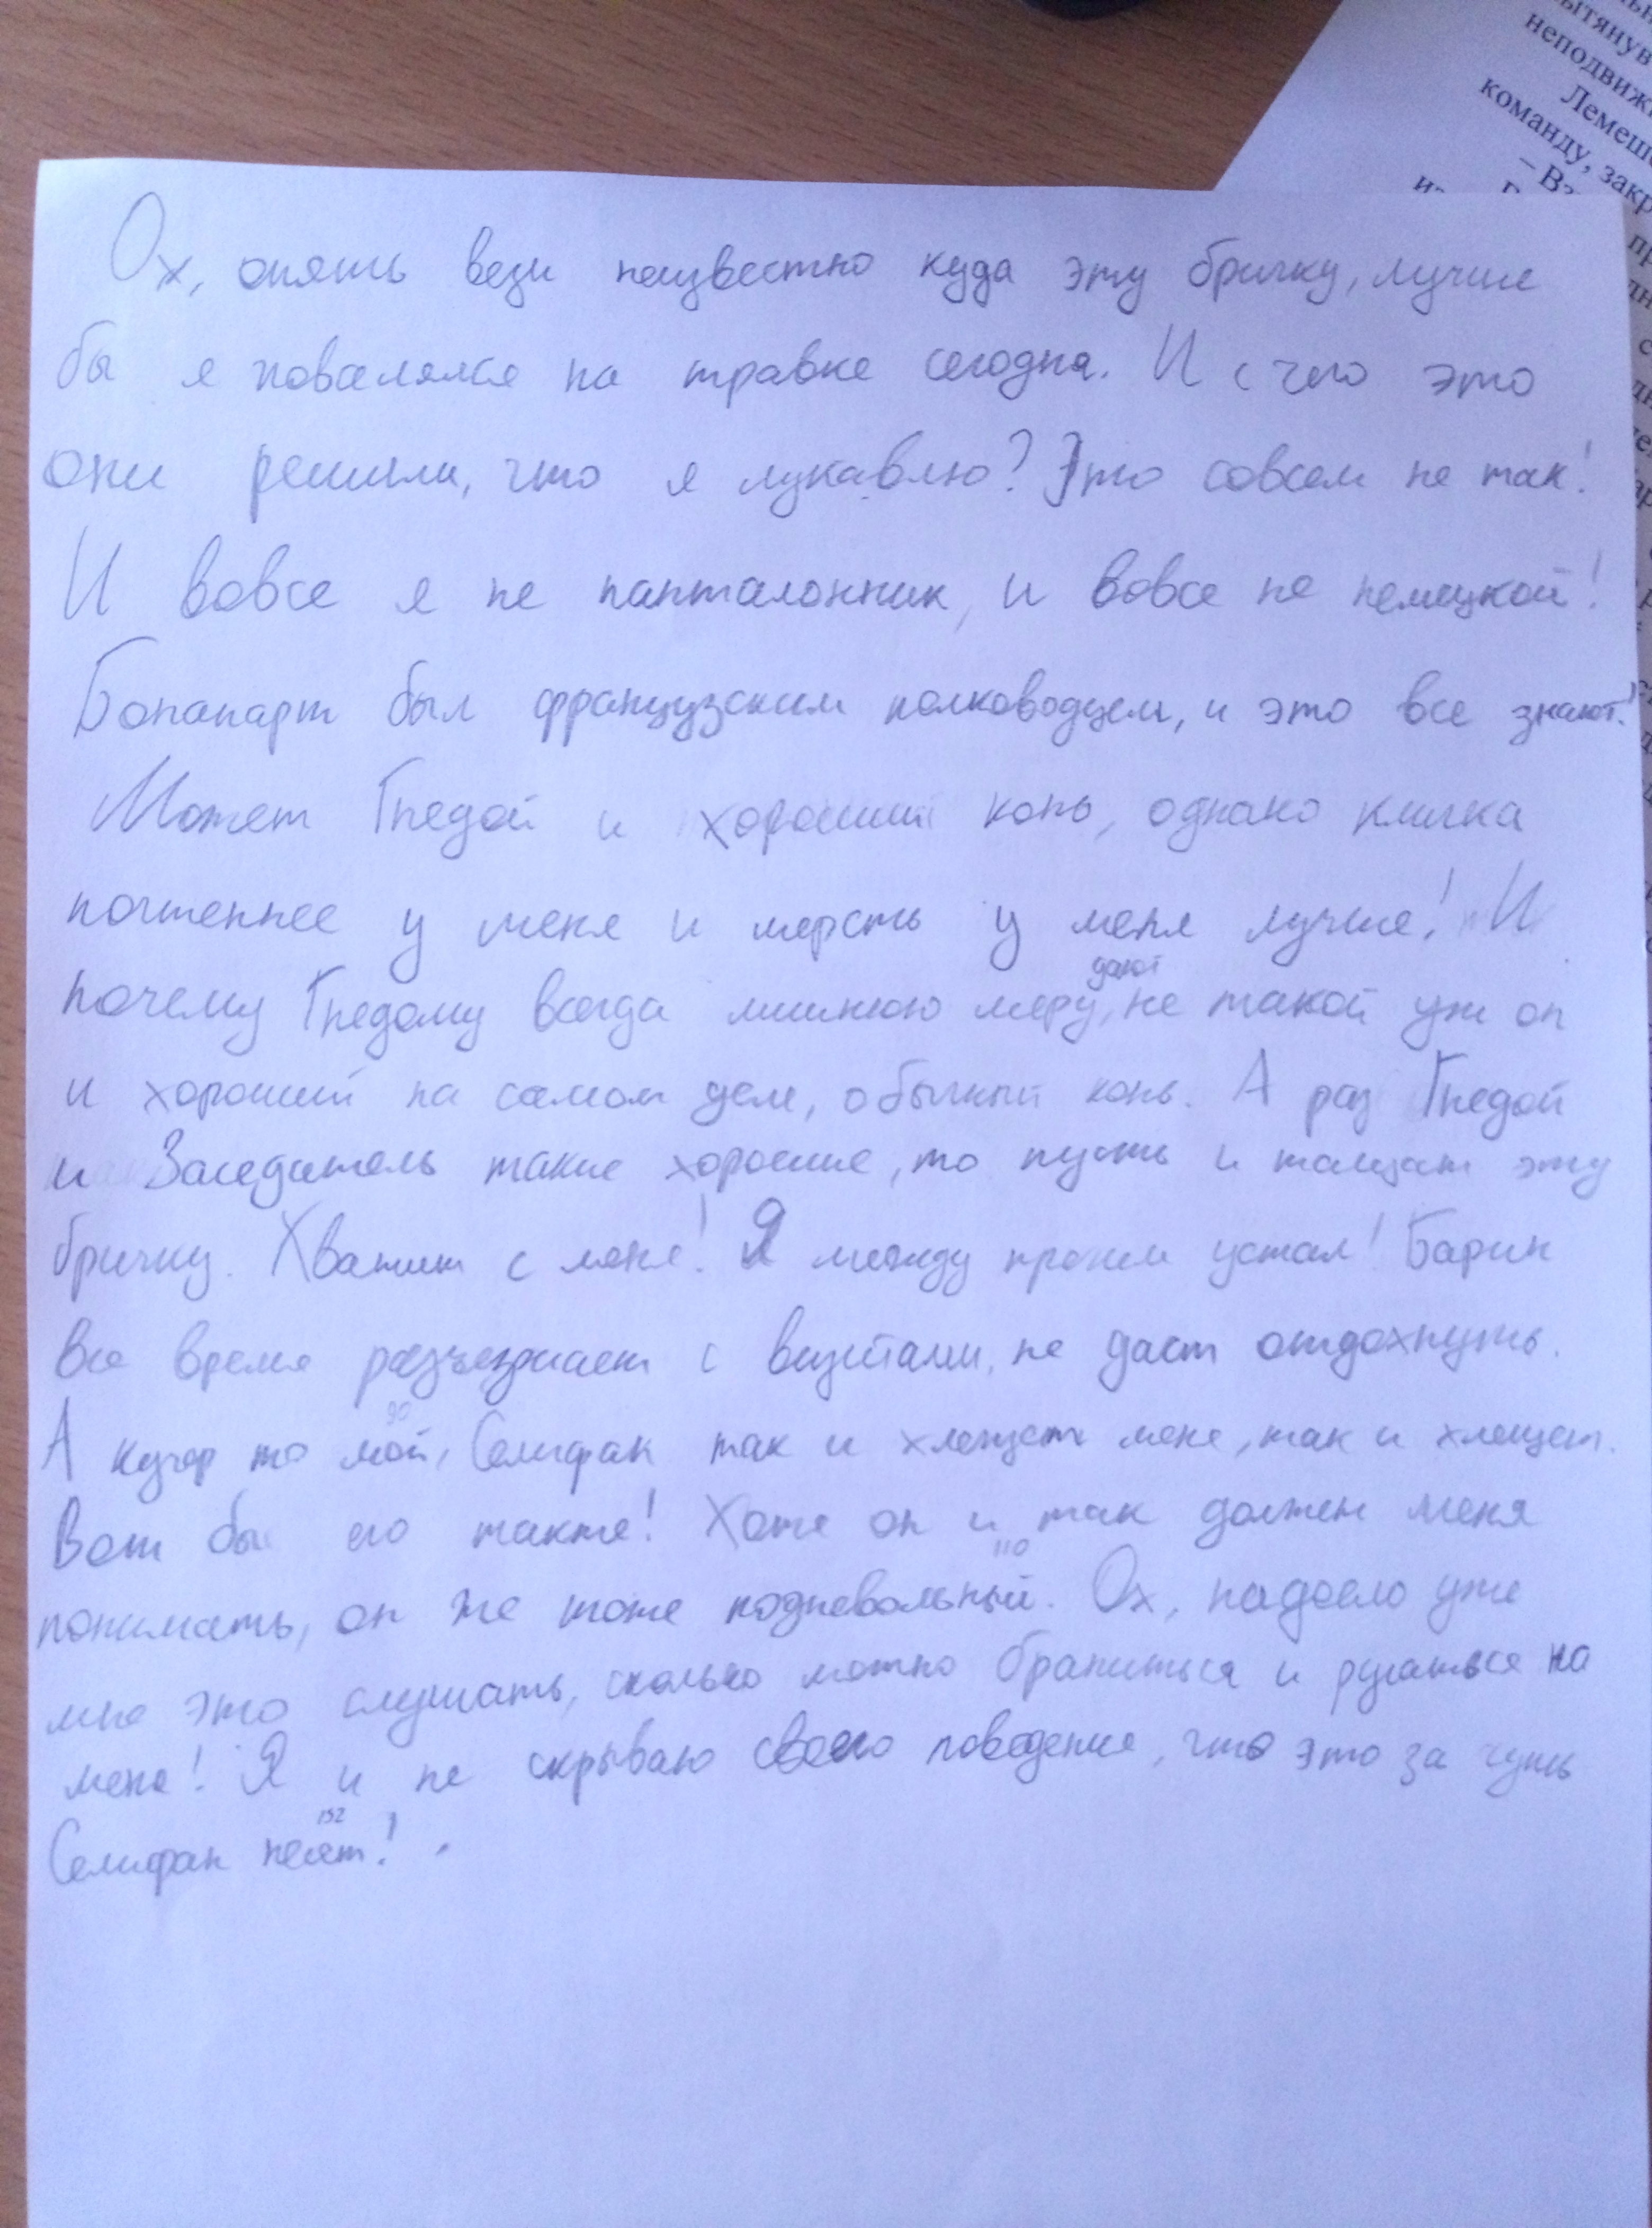 вытянув
неподвиж
Лемеш
команду, закр
– Вз
Ох, опять вези неизвестно куда эту бричку, лучше
бы я повалялся на травке сегодня. И с чего это
они решили, что я лукавлю? Это совсем не так!
И вовсе я не панталонник, и вовсе не немецкой!
Бонапарт был французским полководцем, и это все знают!
Может Гнедой и хороший конь, однако кличка
почтеннее у меня и шерсть у меня лучше! И
почему Гнедому всегда дают лишнюю меру, не такой уж он
и хороший на самом деле, обычный конь. А раз Гнедой
и Заседатель такие хорошие, то пусть и тащат эту
бричку. Хватит с меня! Я между прочим устал! Барин
все время разъезжает с визитами, не даст отдохнуть.
А кучер то мой, Селифан так и хлещет меня, так и хлещет.
90
Вот бы его также! Хотя он и так должен меня
110
понимать, он же тоже подневольный. Ох, надоело уже
мне это слушать, сколько можно браниться и ругаться на
меня! Я и не скрываю своего поведения, что это за чушь
152
Селифан несёт!